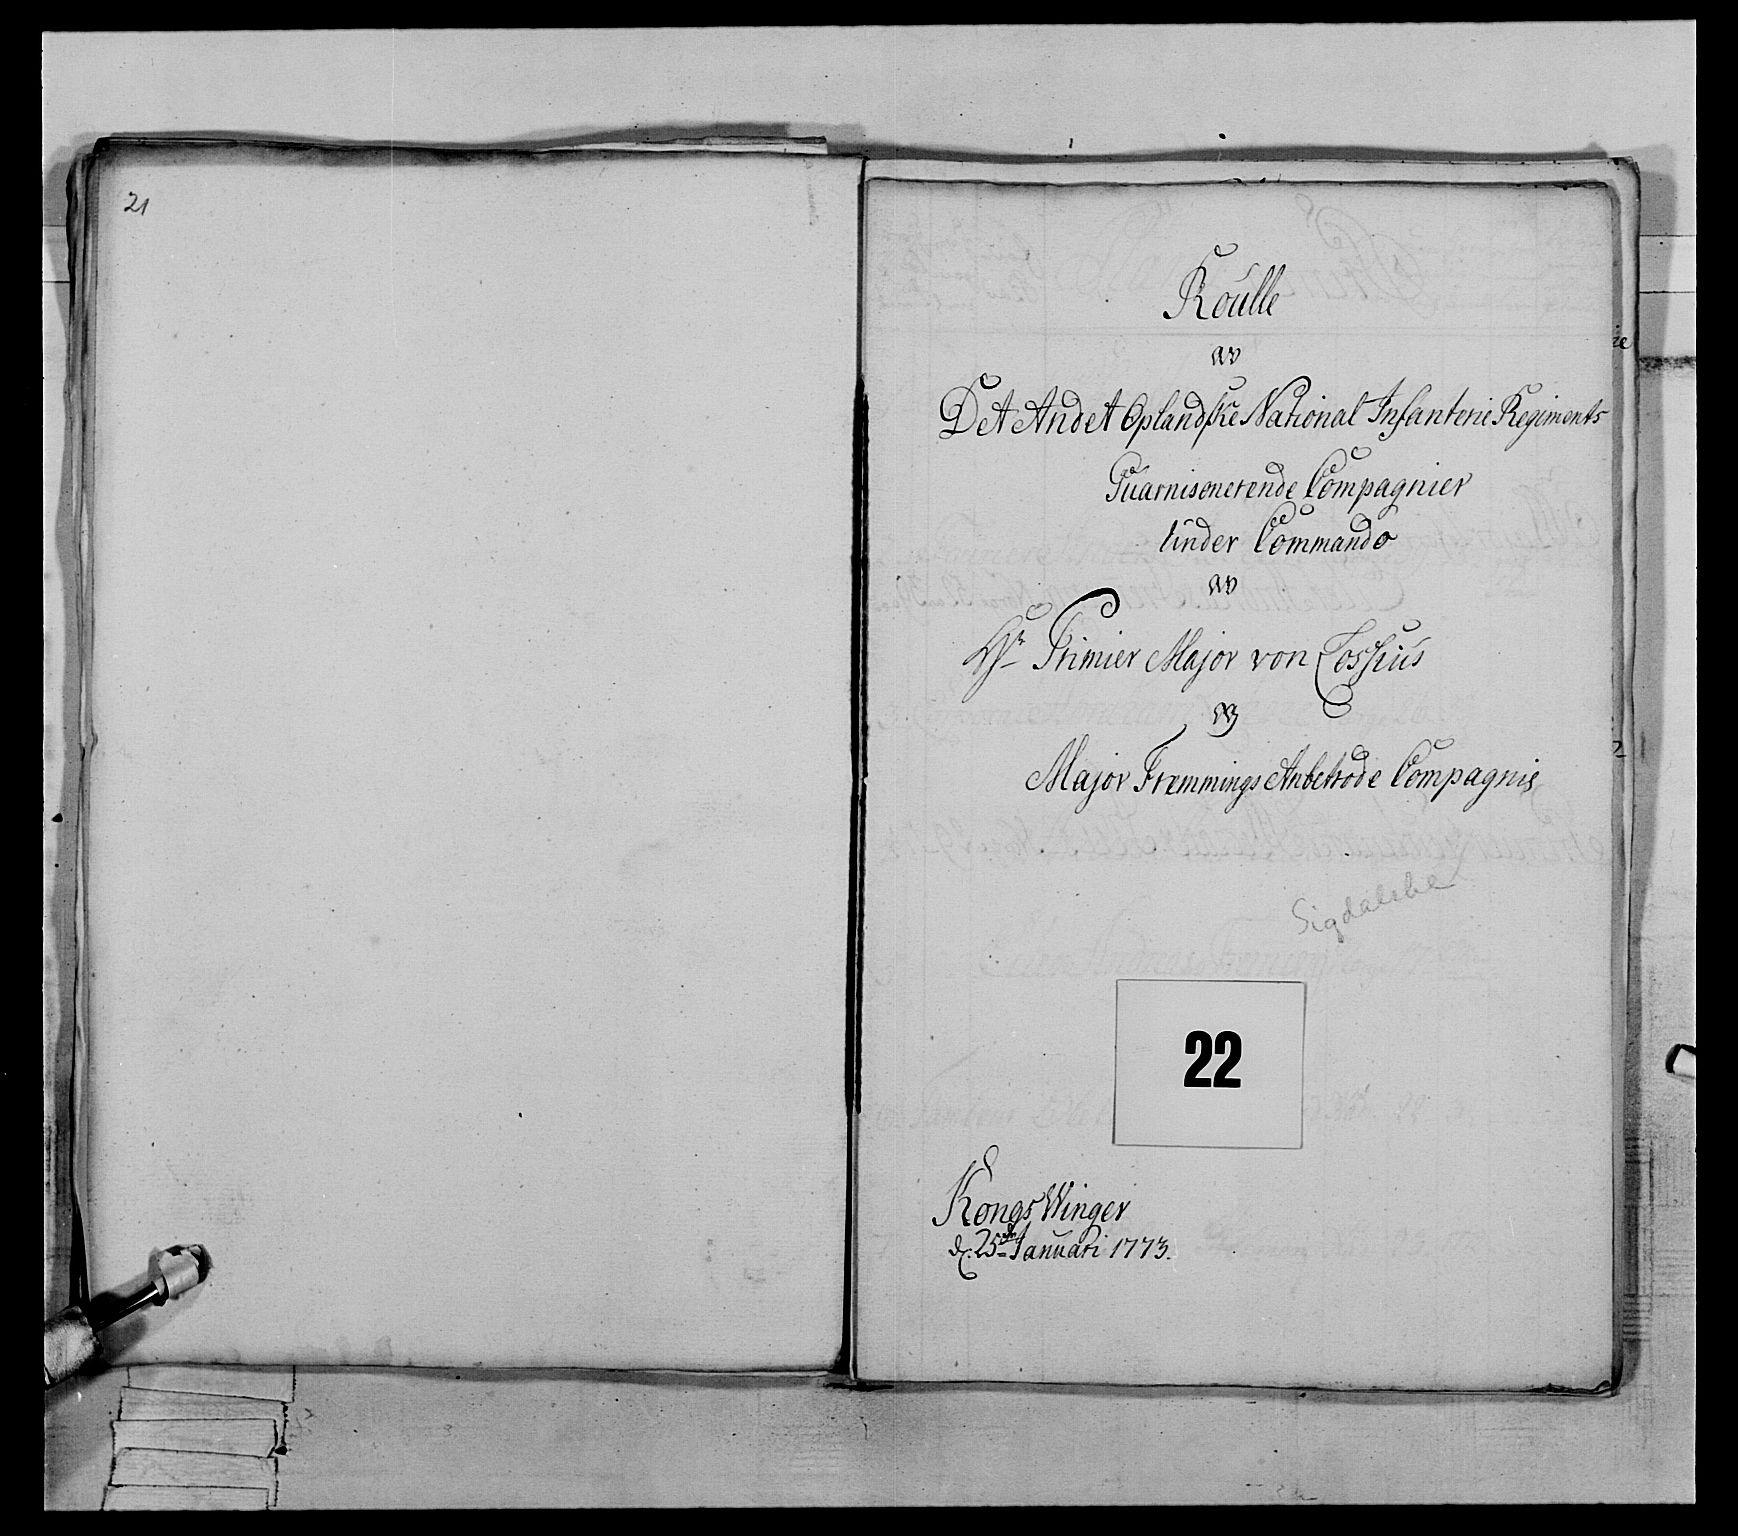 21
Roulle
av
Det Andet Oplandske National Infanterie Regiments
Guarnisonerende Compagnier
Under Commando
av
Hr Primier Major von Cossius
av
Major Fremmings Anbetrode Compagnie
Sigdalske
22
KongsWinger
d. 25de Januari 1773.